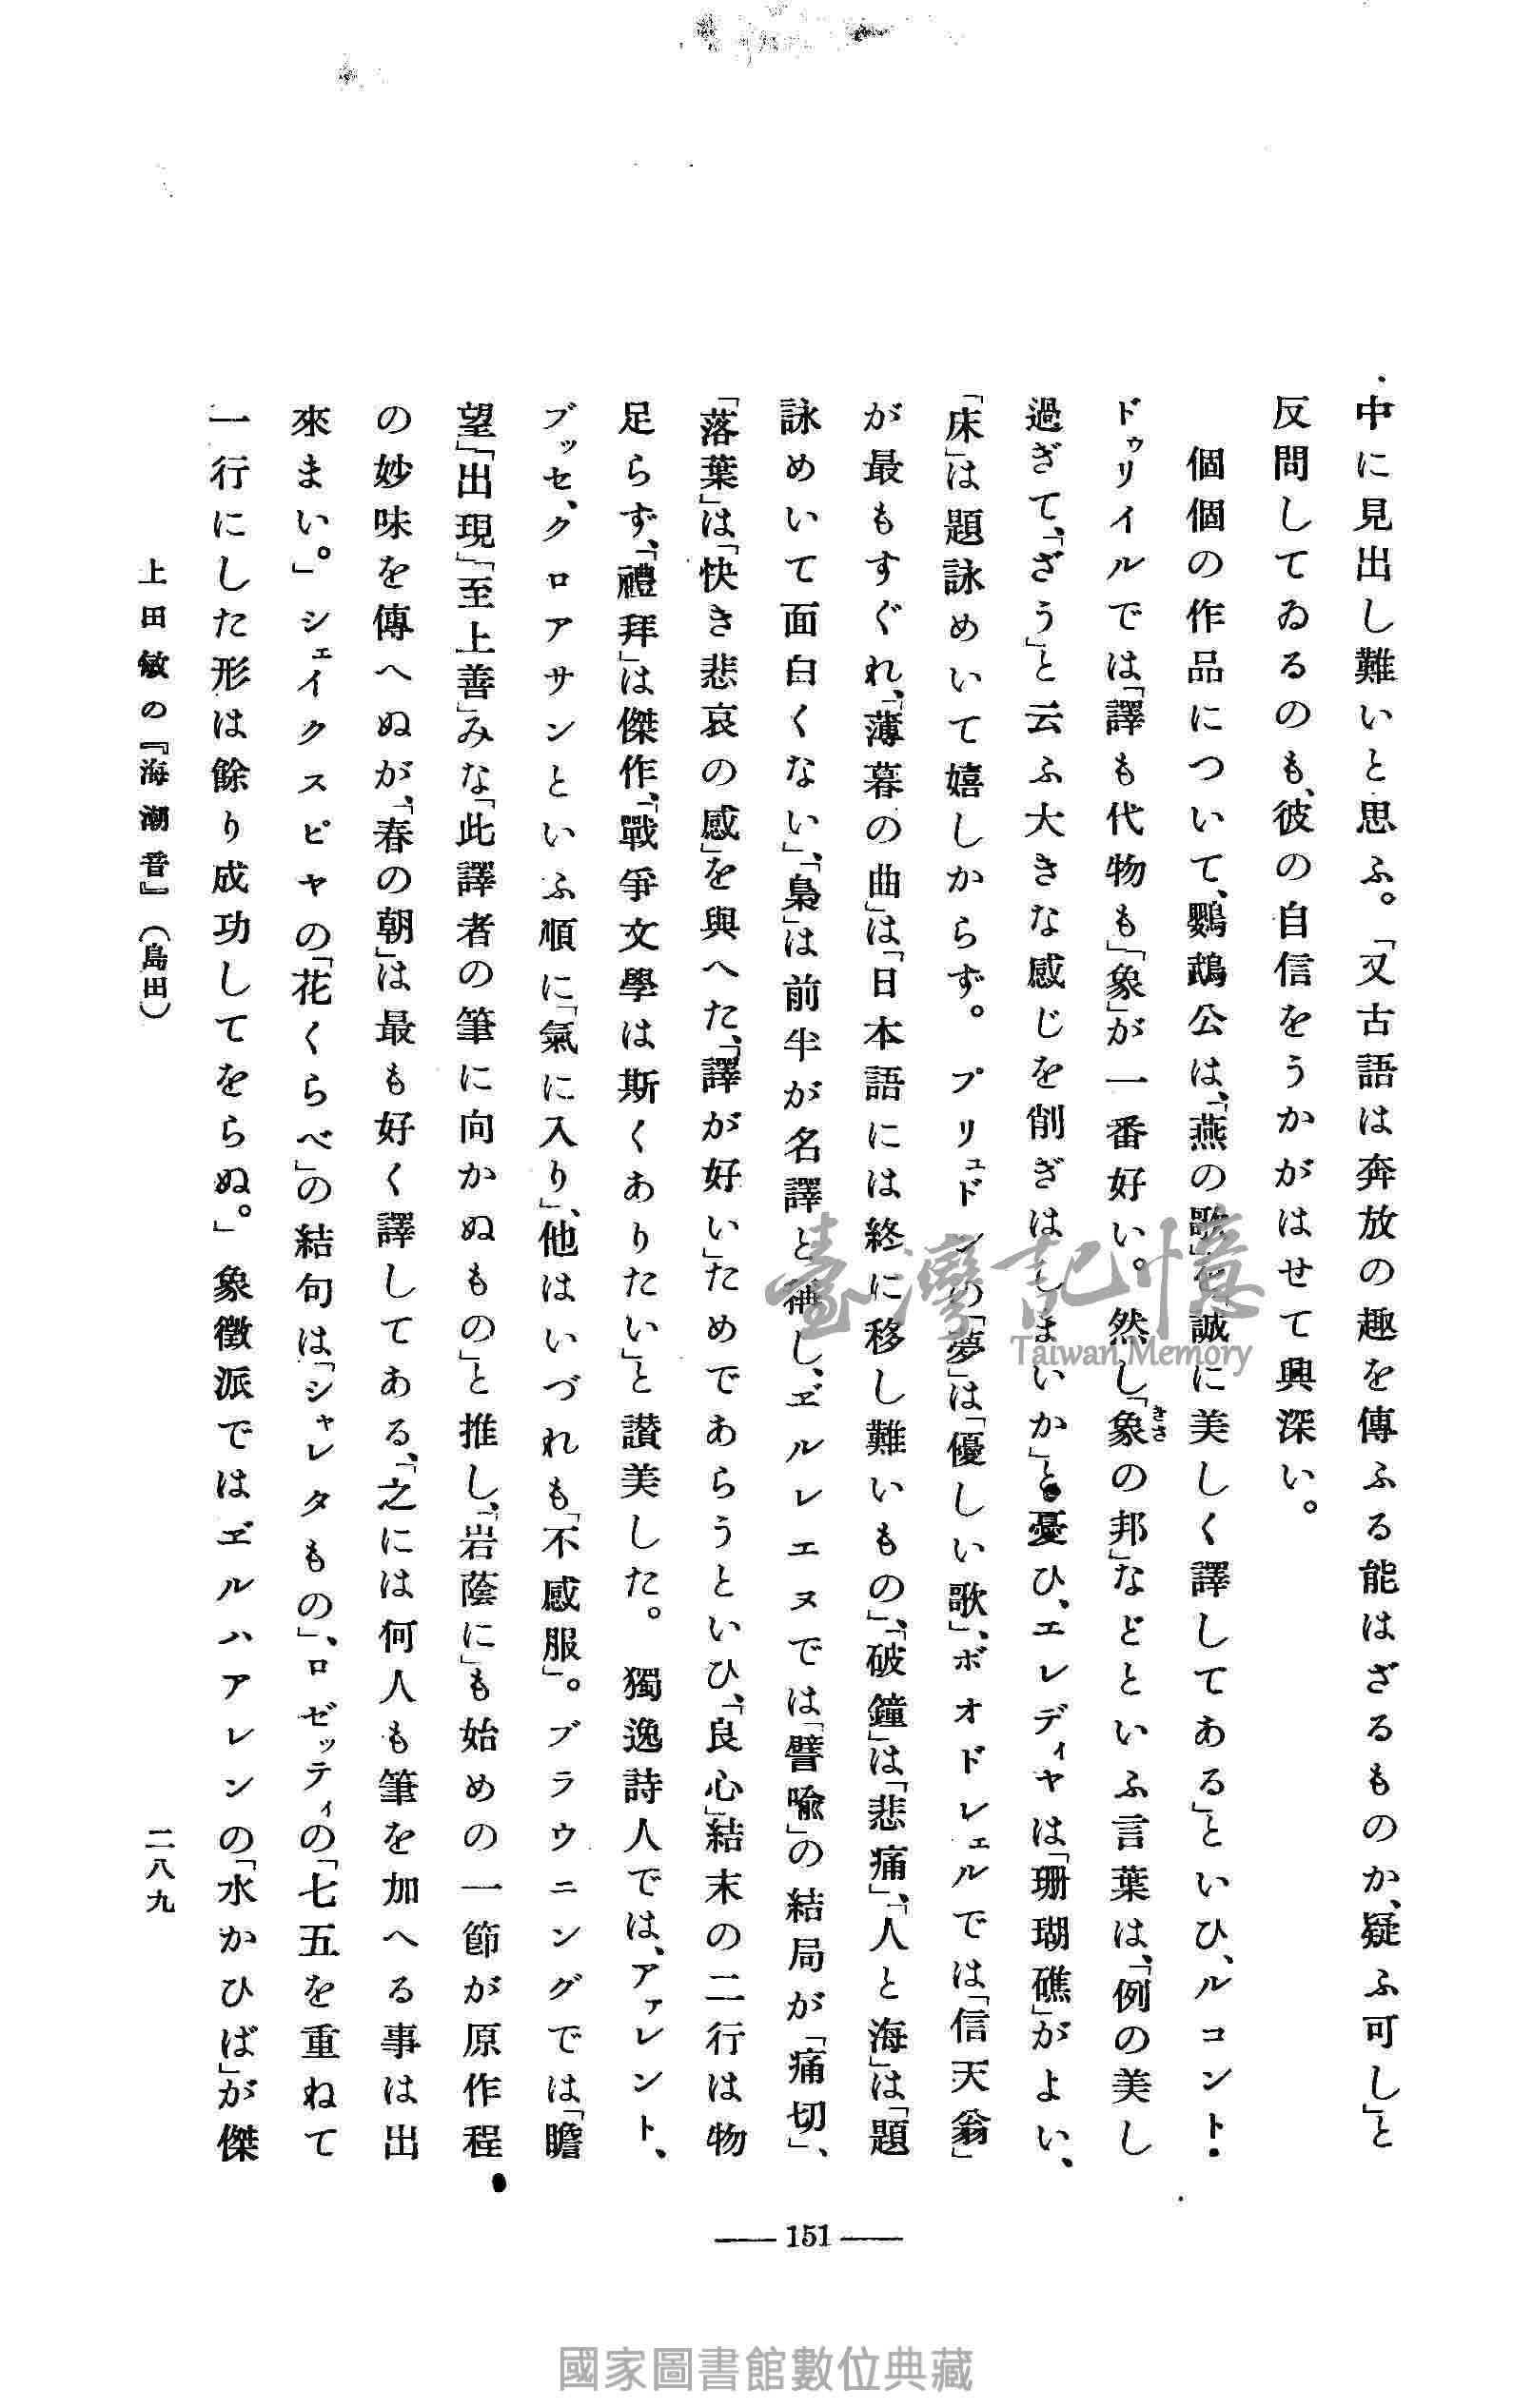 中に見出し難いと思ふ。「又古語は奔放の趣を傳ふる能はざるものか、疑ふ可し」と
反問してゐるのも、彼の自信をうかがはせて興深い。
個個の作品について、鸚鵡公は、「燕の歌」を「誠に美しく譯してある」といひ、ルコント・
ドゥリイルでは「譯も代物も」「象」が一番好い。然し「象の邦」などといふ言葉は、「例の美し
きさ
過ぎて、「ざう」と云ふ大きな感じを削ぎはしまいか」と憂ひ、エレディヤは「珊瑚礁」がよい、
「床」は題詠めいて嬉しからず。プリュドンの「夢」は「優しい歌」、ボオドレェルでは「信天翁」
が最もすぐれ、「薄暮の曲」は「日本語には終に移し難いもの」、「破鐘」は「悲痛」、「人と海」は「題
詠めいて面白くない」、「梟」は前半が名譯と稱し、ヹルレエヌでは「譬喩」の結局が「痛切」、
「落葉」は「快き悲哀の感」を與へた、「譯が好い」ためであらうといひ、「良心」結末の二行は物
足らず、「禮拜」は傑作、「戰爭文學は斯くありたい」と讃美した。獨逸詩人では、アァレント、
ブッセ、クロアサンといふ順に「氣に入り」、他はいづれも「不感服」。ブラウニングでは「瞻
望」「出現」「至上善」みな「此譯者の筆に向かぬもの」と推し、「岩蔭に」も始めの一節が原作程
の妙味を傳へぬが、「春の朝」は最も好く譯してある、「之には何人も筆を加へる事は出
來まい。」シェイクスピヤの「花くらべ」の結句は「シャレタもの」、ロゼッティの「七五を重ねて
一行にした形は餘り成功してをらぬ。」象徴派ではヹルハアレンの「水かひば」が傑
上田敏の『海潮音』（島田）
二八九
151
臺灣記憶
Taiwan Memory
國家圖書館數位典藏